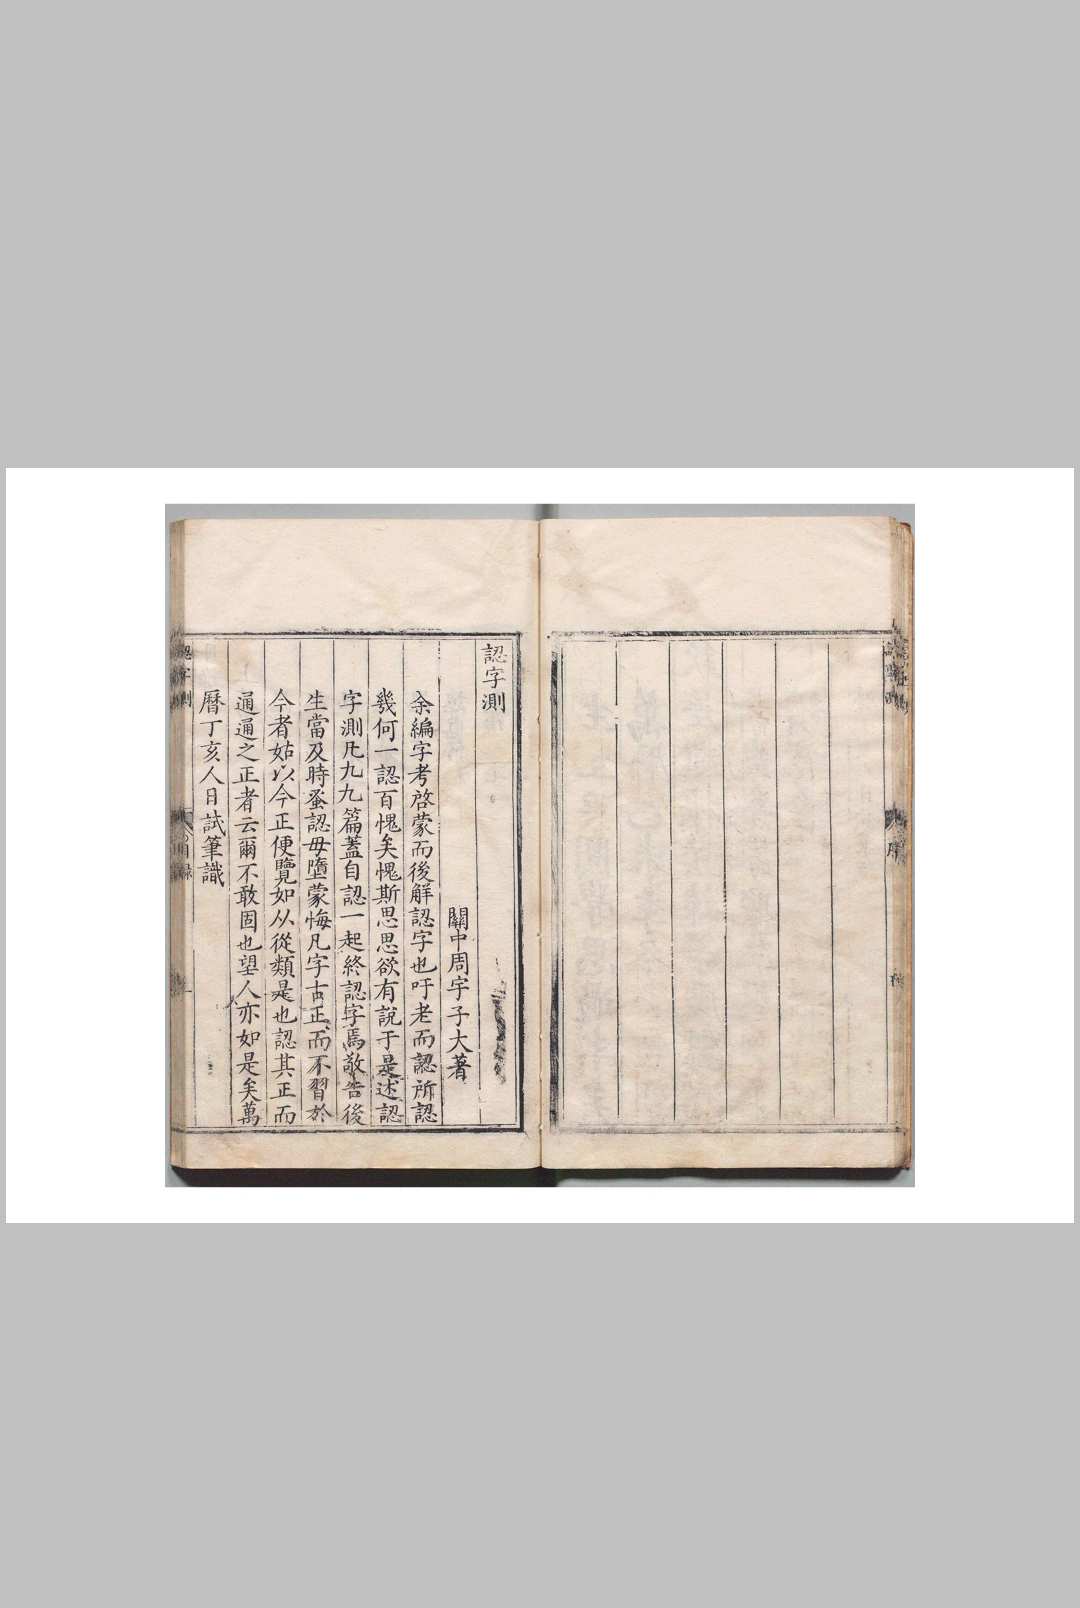 認字測
關中周宇子大著
余編字考啓蒙而後解認字也吁老而認所認
幾何一認百愧矣愧斯思思欲有說于是述認
字測凡九九篇蓋自認一起終認字焉敬告後
生當及時蚤認毋墮蒙悔凡字古正而不習於
今者姑以今正便覽如从從類是也認其正而
通通之正者云爾不敢固也望人亦如是矣萬
曆丁亥人日試筆識
認字測
目録
一
序